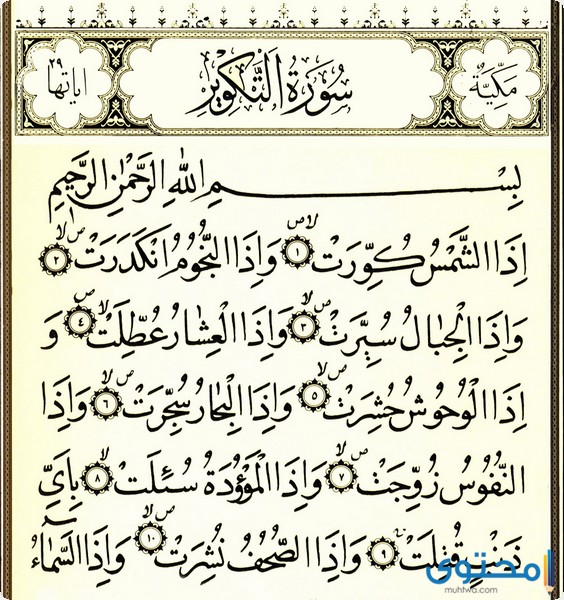 مَكِّيَّةٌ سُورَةُ التَّكْوِيرِ اياتها ٢٩
بِسْمِ اللهِ الرَّحْمٰنِ الرَّحِيمِ
اِذَا الشَّمْسُ كُوِّرَتْ ۙۖ ١ وَاِذَا النُّجُومُ انْكَدَرَتْ ۙۖ ٢
وَاِذَا الْجِبَالُ سُيِّرَتْ ۙۖ ٣ وَاِذَا الْعِشَارُ عُطِّلَتْ ۙۖ ٤ وَ
اِذَا الْوُحُوشُ حُشِرَتْ ۙۖ ٥ وَاِذَا الْبِحَارُ سُجِّرَتْ ۙۖ ٦ وَاِذَا
النُّفُوسُ زُوِّجَتْ ۙۖ ٧ وَاِذَا الْمَوْؤُدَةُ سُئِلَتْ ۙۖ ٨ بِاَيِّ
ذَنْبٍ قُتِلَتْ ٩ وَاِذَا الصُّحُفُ نُشِرَتْ ۙۖ ١٠ وَاِذَا السَّمَاۤءُ
محتوى
muhtwa.com